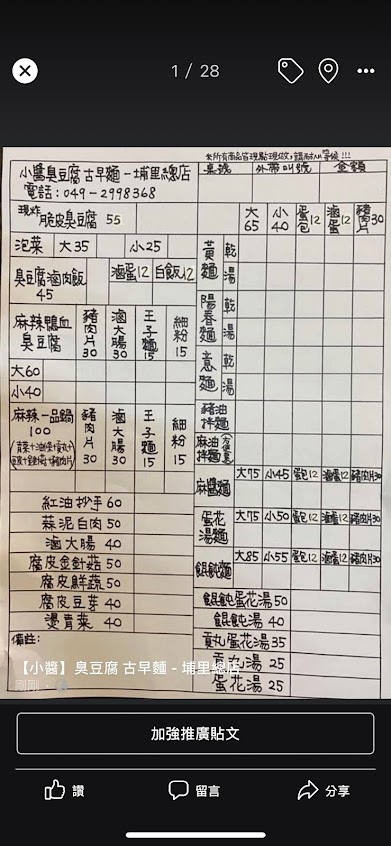 1 / 28
※所有商品皆現點現做,請耐心等候!!!
小醬臭豆腐 古早麵-埔里總店
電話:049-2998368
桌號 外帶叫號 金額
現炸 脆皮臭豆腐 55
泡菜 大35 小25
臭豆腐滷肉飯 45 滷蛋12 白飯12
麻辣鴨血臭豆腐 豬肉片30 滷大腸30 王子麵15 細粉15
大60
小40
麻辣一品鍋 100 豬肉片30 滷大腸30 王子麵15 細粉15
紅油抄手 60
蒜泥白肉 50
滷大腸 40
腐皮金針菇 50
腐皮鮮蔬 50
腐皮豆芽 40
燙青菜 40
備註:
大65 小40 蛋包12 滷蛋12 豬肉片30
黃麵 乾 湯
陽春麵 乾 湯
意麵 乾 湯
豬油拌麵
麻油拌麵
麻醬麵 大75 小45 蛋包12 滷蛋12 豬肉片30
蛋花湯麵 大75 小50 蛋包12 滷蛋12 豬肉片30
餛飩麵 大85 小55 蛋包12 滷蛋12 豬肉片30
餛飩蛋花湯 50
餛飩湯 40
貢丸蛋花湯 35
貢丸湯 25
蛋花湯 25
【小醬】臭豆腐 古早麵 - 埔里總店
剛剛
加強推廣貼文
讚 留言 分享